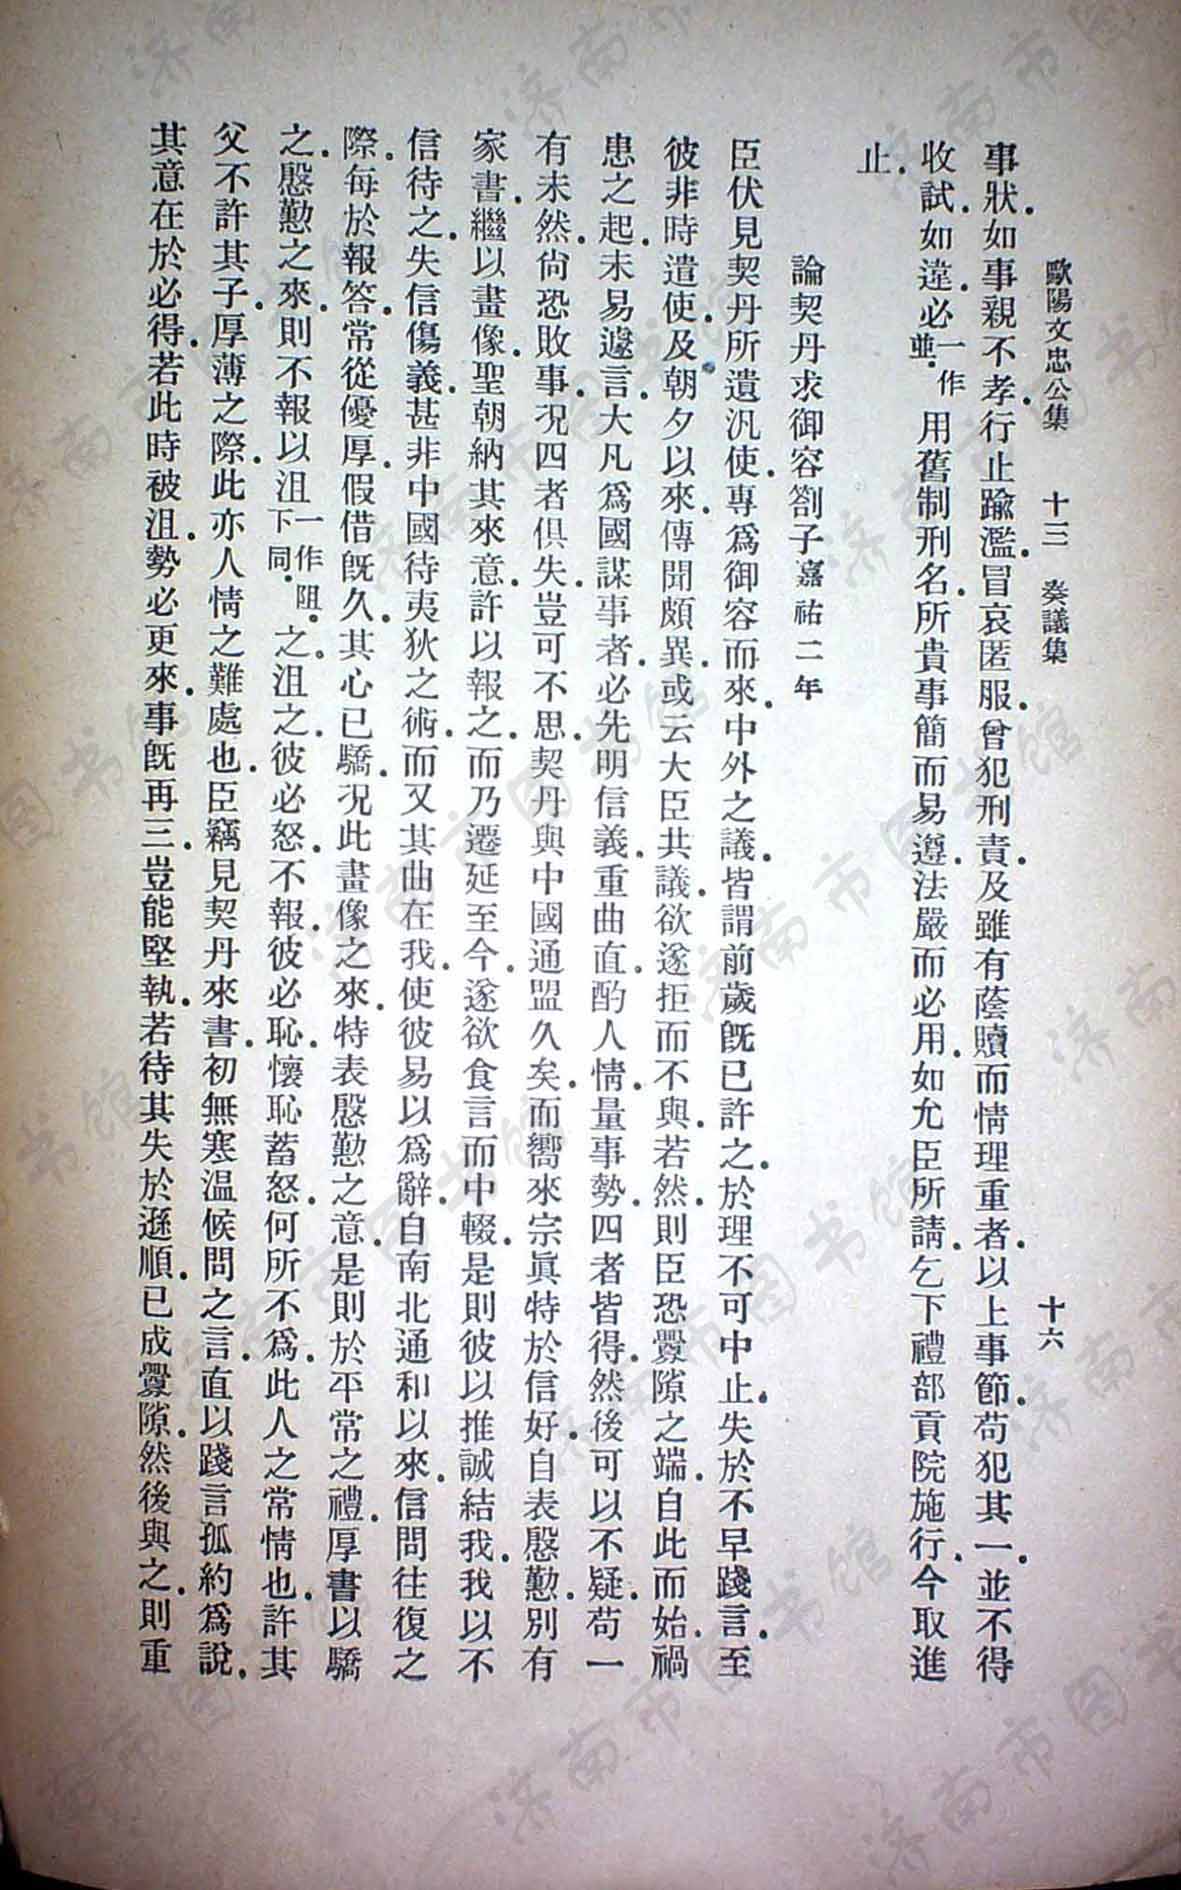 歐陽文忠公集　十三　奏議集　十六
事狀．如事親不孝．行止踰濫．冒哀匿服．曾犯刑責．及雖有蔭贖而情理重者．以上事節．苟犯其一．並不得
收試．如違．必一作並．用舊制刑名．所貴事簡而易遵．法嚴而必用．如允臣所請．乞下禮部貢院施行．今取進
止．
論契丹求御容劄子嘉祐二年
臣伏見契丹所遺汎使．專為御容而來．中外之議．皆謂前歲旣已許之．於理不可中止．失於不早踐言．至
彼非時遣使．及朝夕以來．傳聞頗異．或云大臣共議．欲遂拒而不與．若然．則臣恐釁隙之端．自此而始．禍
患之起．未易遽言．大凡為國謀事者．必先明信義．重曲直．酌人情．量事勢．四者皆得．然後可以不疑．苟一
有未然．尙恐敗事．況四者俱失．豈可不思．契丹與中國通盟久矣．而嚮來宗眞特於信好．自表慇懃．別有
家書．繼以畫像．聖朝納其來意．許以報之．而乃遷延至今．遂欲食言而中輟．是則彼以推誠結我．我以不
信待之．失信傷義．甚非中國待夷狄之術．而又其曲在我．使彼易以為辭．自南北通和以來．信問往復之
際．每於報答．常從優厚．假借旣久．其心已驕．況此畫像之來．特表慇懃之意．是則於平常之禮．厚書以驕
之．慇懃之來．則不報以沮一作阻．下同．之．沮之彼必怒．不報．彼必恥．懷恥蓄怒．何所不為．此人之常情也．許其
父不許其子．厚薄之際．此亦人情之難處也．臣竊見契丹來書．初無寒温候問之言．直以踐言孤約為說．
其意在於必得．若此時被沮．勢必更來．事旣再三．豈能堅執．若待其失於遜順．已成釁隙．然後與之．則重